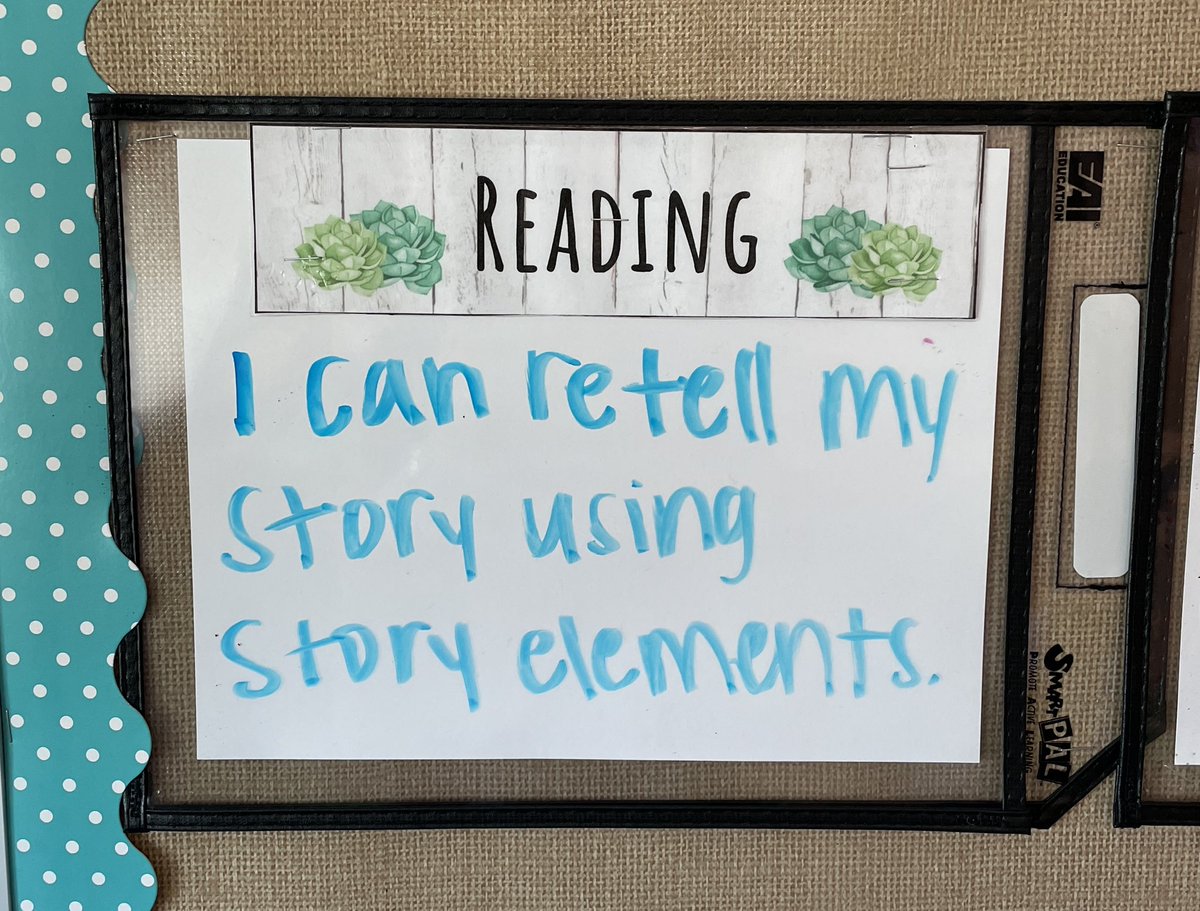 READING
I can retell my
story using
story elements.
EAI
EDUCATION
SMART PAL
PROMOTE ACTIVE LEARNING